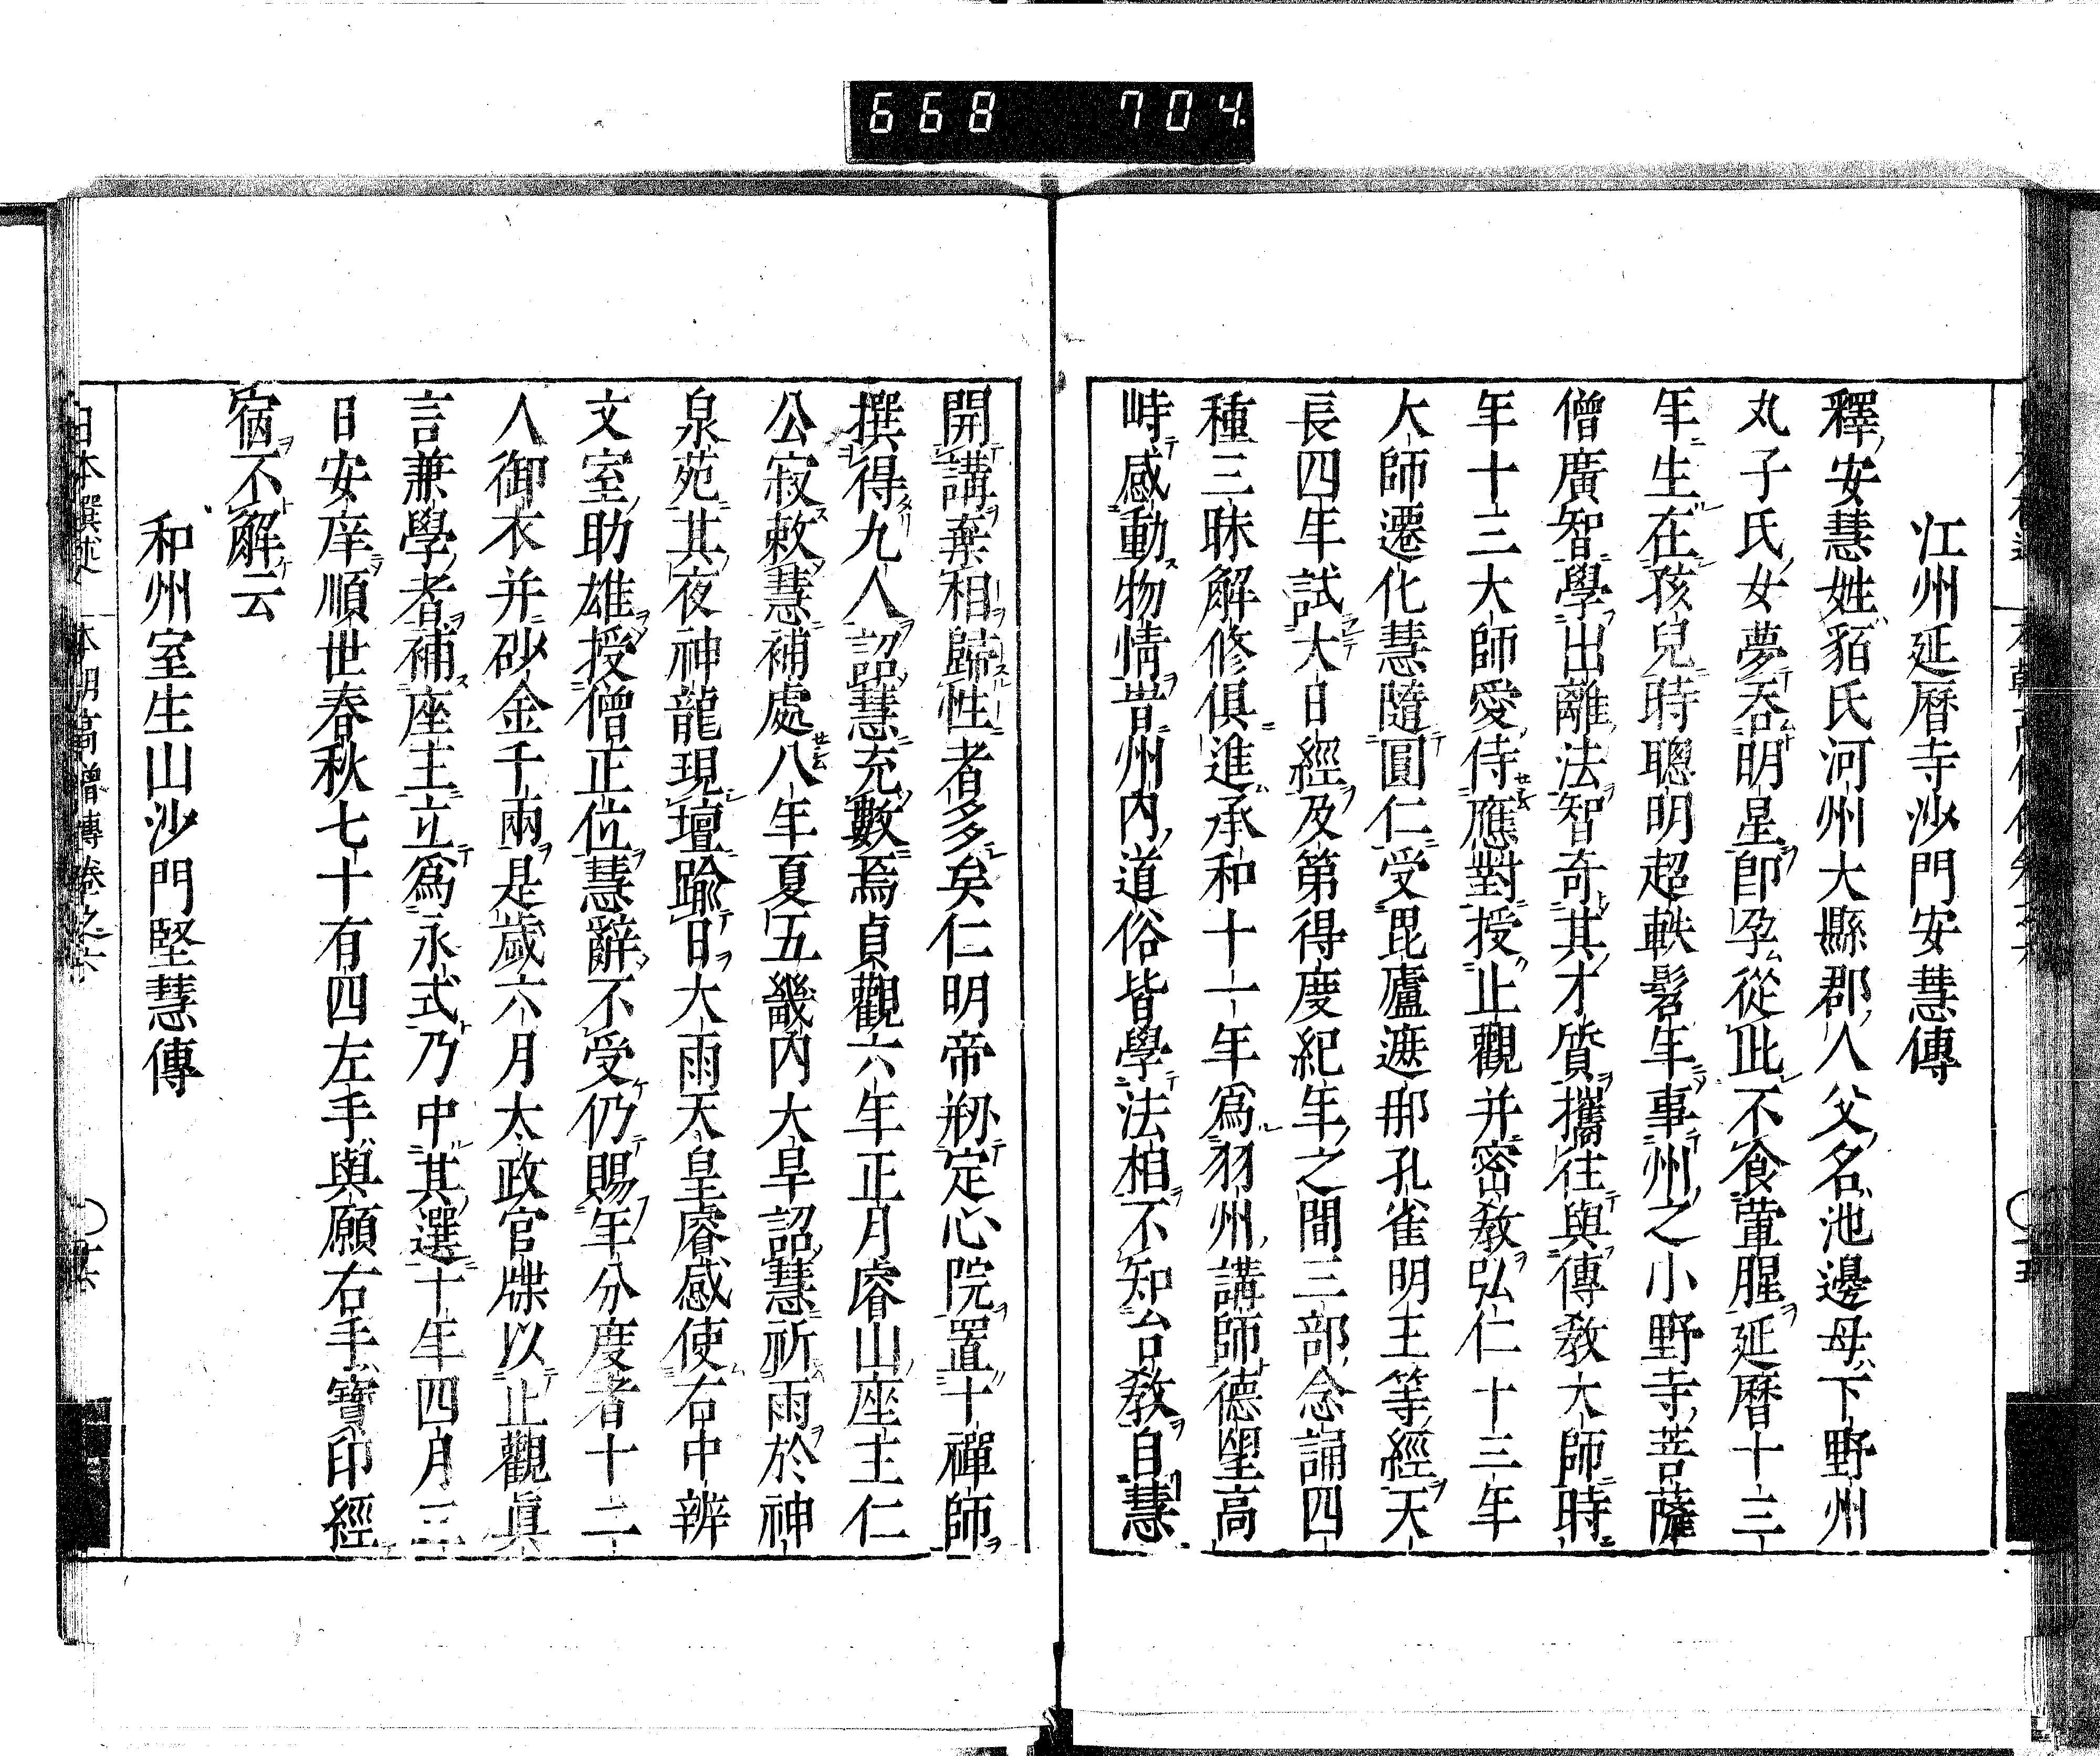 668 704
江州延曆寺沙門安慧傳
釋安慧姓貊氏河州大縣郡人父名池邊母下野州
丸子氏女夢吞明星卽孕從此不食葷腥延曆十三
年生在孩兒時聰明超軼髫年事州之小野寺菩薩
僧廣智學出離法智奇其才質攜往與傳教大師時
年十三大師愛侍應對授止觀并密教弘仁十三年
大師遷化慧隨圓仁受毘盧遮那孔雀明王等經天
長四年試大日經及第得度紀年之間三部念誦四
種三昧解修俱進承和十一年爲羽州講師德望高
峙感動物情昔州內道俗皆學法相不知台教自慧
開講棄相歸性者多矣仁明帝剏定心院置十禪師
撰得九人詔慧充數焉貞觀六年正月睿山座主仁
公寂敕慧補處八年夏五畿內大旱詔慧祈雨於神
泉苑其夜神龍現壇踰日大雨天皇睿感使右中辨
文室助雄授僧正位慧辭不受仍賜年分度者十二
人御衣并砂金千兩是歲六月太政官牒以止觀眞
言兼學者補座主立爲永式乃中其選十年四月三
日安庠順世春秋七十有四左手與願右手寶印經
宿不解云
和州室生山沙門堅慧傳
日本撰述 本朝高僧傳卷之六